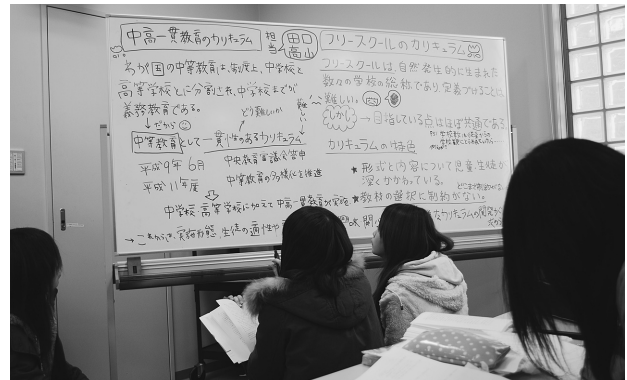 中高一貫教育のカリキュラム
担当
田口
高山
わが国の中等教育は、制度上、中学校と
高等学校とに分割され、中学校までが
義務教育である。
↓だから
どう難しいか
難しい
中等教育として一貫性のあるカリキュラム
平成9年 6月 中央教育審議会答申
平成11年度 中等教育の多様化を推進
中学校、高等学校に加えて中高一貫教育が実施
→ これからも、実施形態、生徒の適性や
フリースクールのカリキュラム
フリースクールは、自然発生的に生まれた
数々の学校の総称であり、定義づけることは
難しい。
しかし
→ 目指している点はほぼ共通である
カリキュラムの特色
★ 形式と内容について児童生徒が
深くかかわっている。
★ 教材の選択に制約がない。
カリキュラムの開発